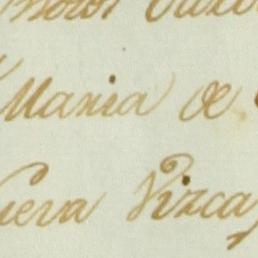 Maria de
ueva Vizca